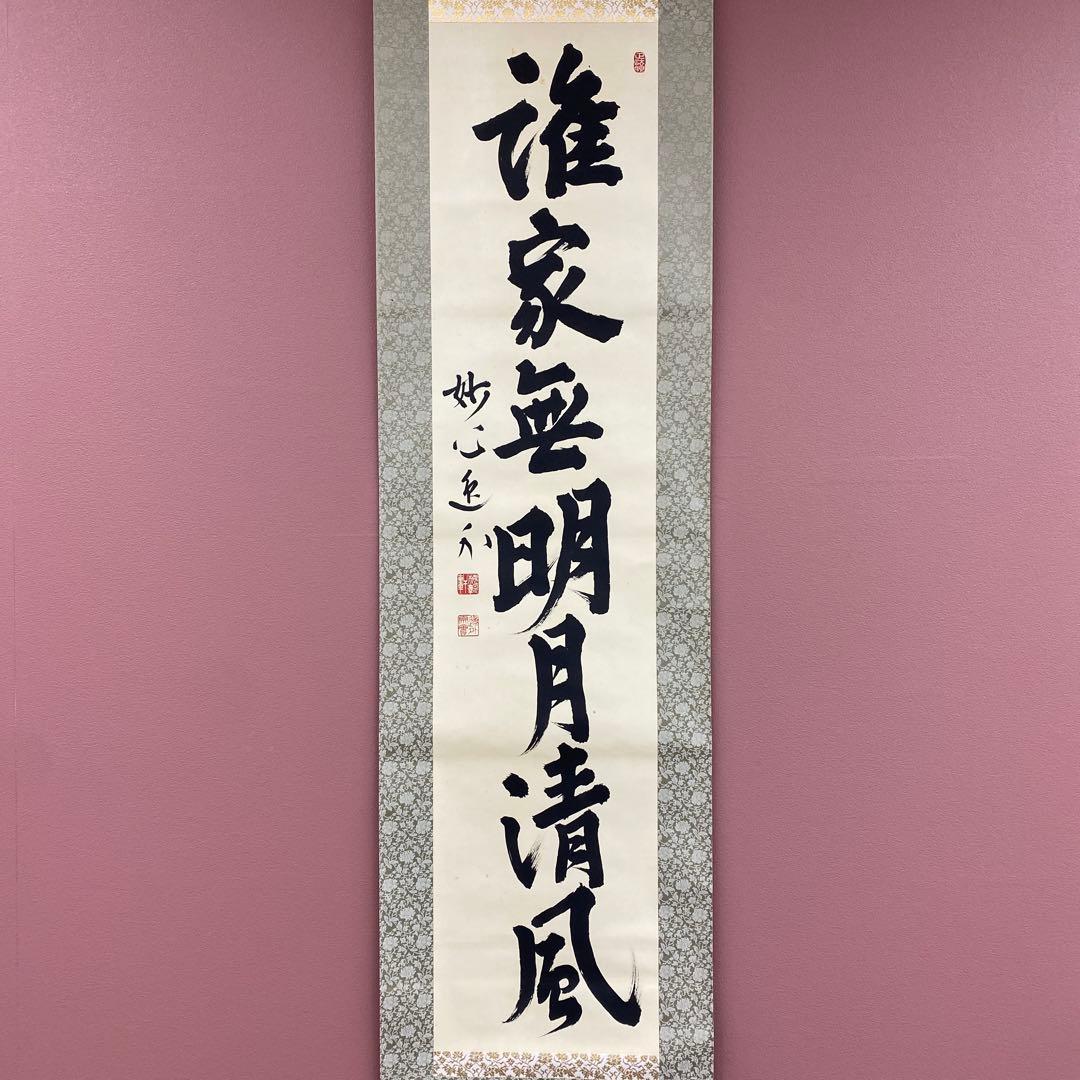 誰家無明月清風
妙心